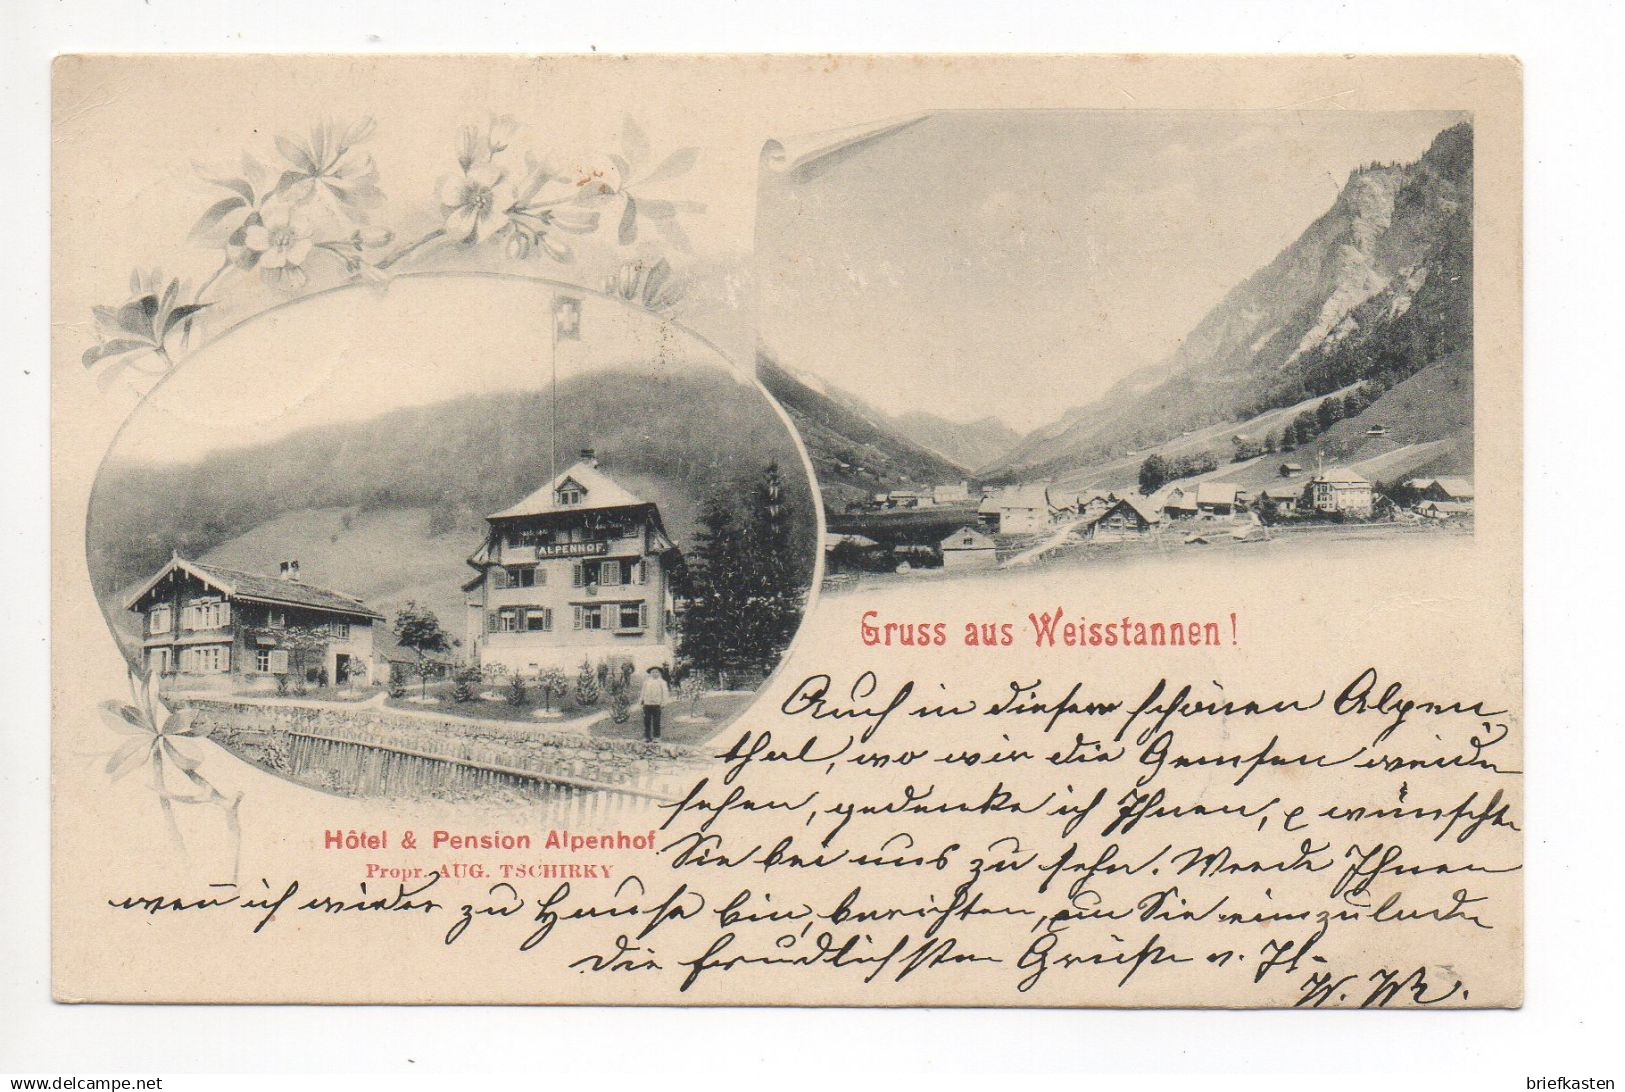 ALPENHOF.
Gruss aus Weisstannen!
Hôtel & Pension Alpenhof
Propr. AUG. TSCHIRKY
Auch in diesem schönen Alpen,
thal, wo wir die Gemsen weiden
sehen, gedenke ich Ihnen, & wünschte
Sie bei uns zu sehn. Werde Ihnen
wen̄ ich wieder zu Hause bin, berichten, um Sie einzuladen
die freundlichsten Grüße v. Ih-
W. W.
delcampe.net
briefkasten